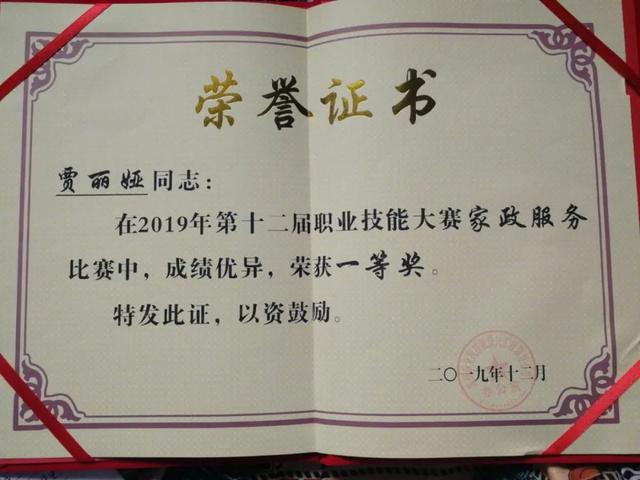 荣誉证书
贾丽娅同志：
在2019年第十二届职业技能大赛家政服务
比赛中，成绩优异，荣获一等奖。
特发此证，以资鼓励。
二〇一九年十二月